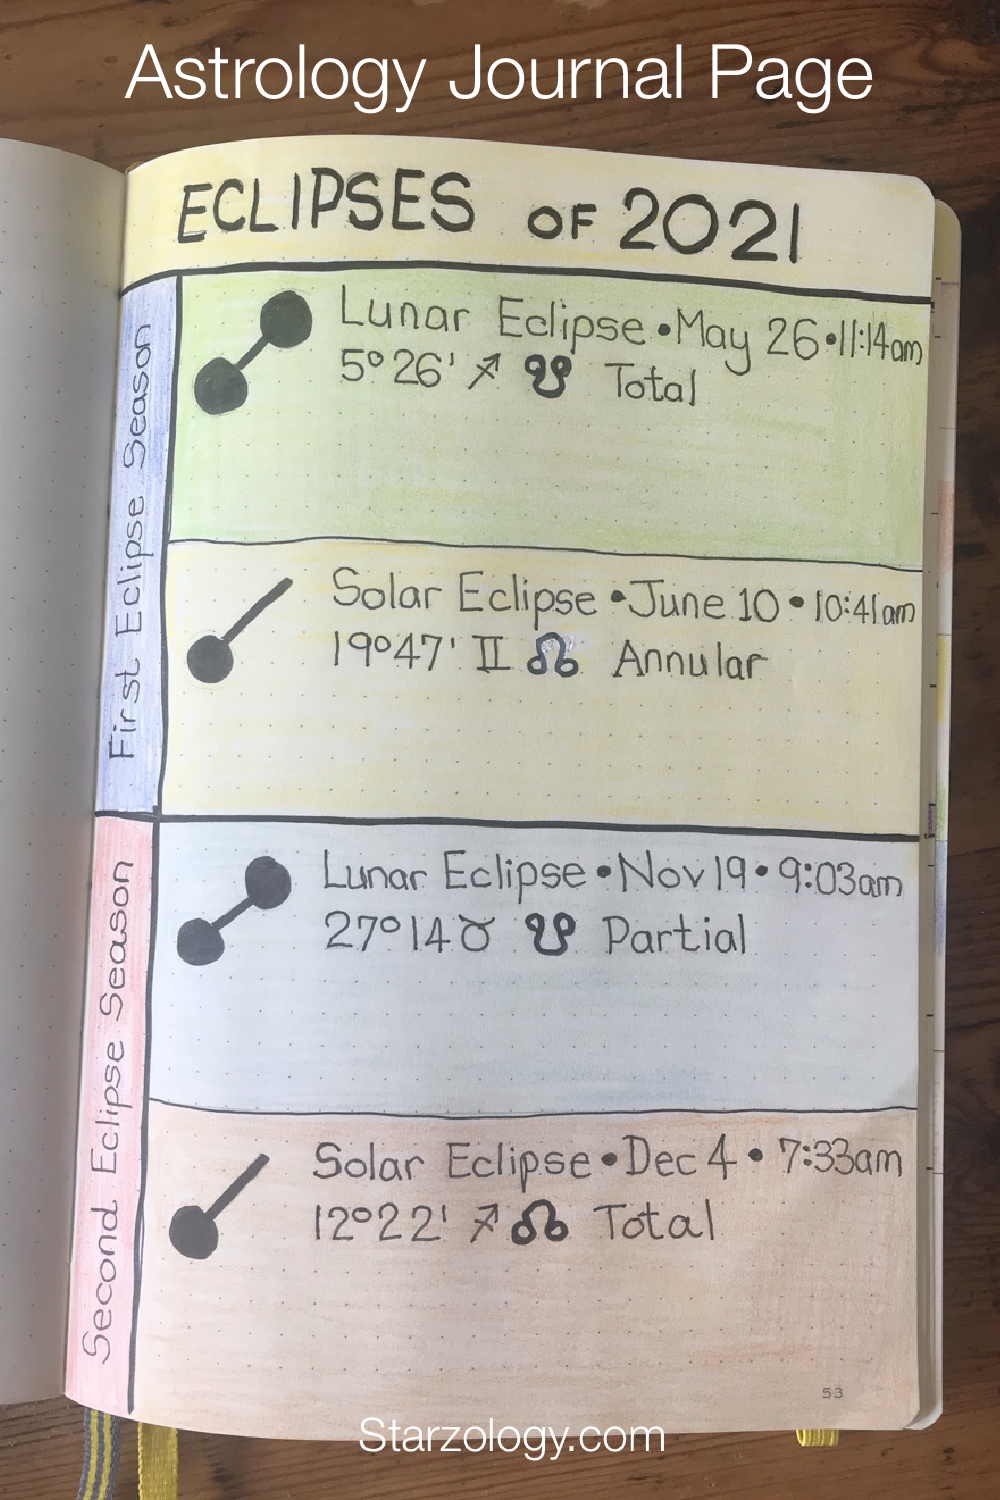 Astrology Journal Page
ECLIPSES OF 2021
First Eclipse Season
Lunar Eclipse • May 26 • 11:14am
5° 26' ♐ ☋ Total
Solar Eclipse • June 10 • 10:41am
19° 47' ♊ ☊ Annular
Second Eclipse Season
Lunar Eclipse • Nov 19 • 9:03am
27° 14 ♉ ☋ Partial
Solar Eclipse • Dec 4 • 7:33am
12° 22' ♐ ☊ Total
53
Starzology.com